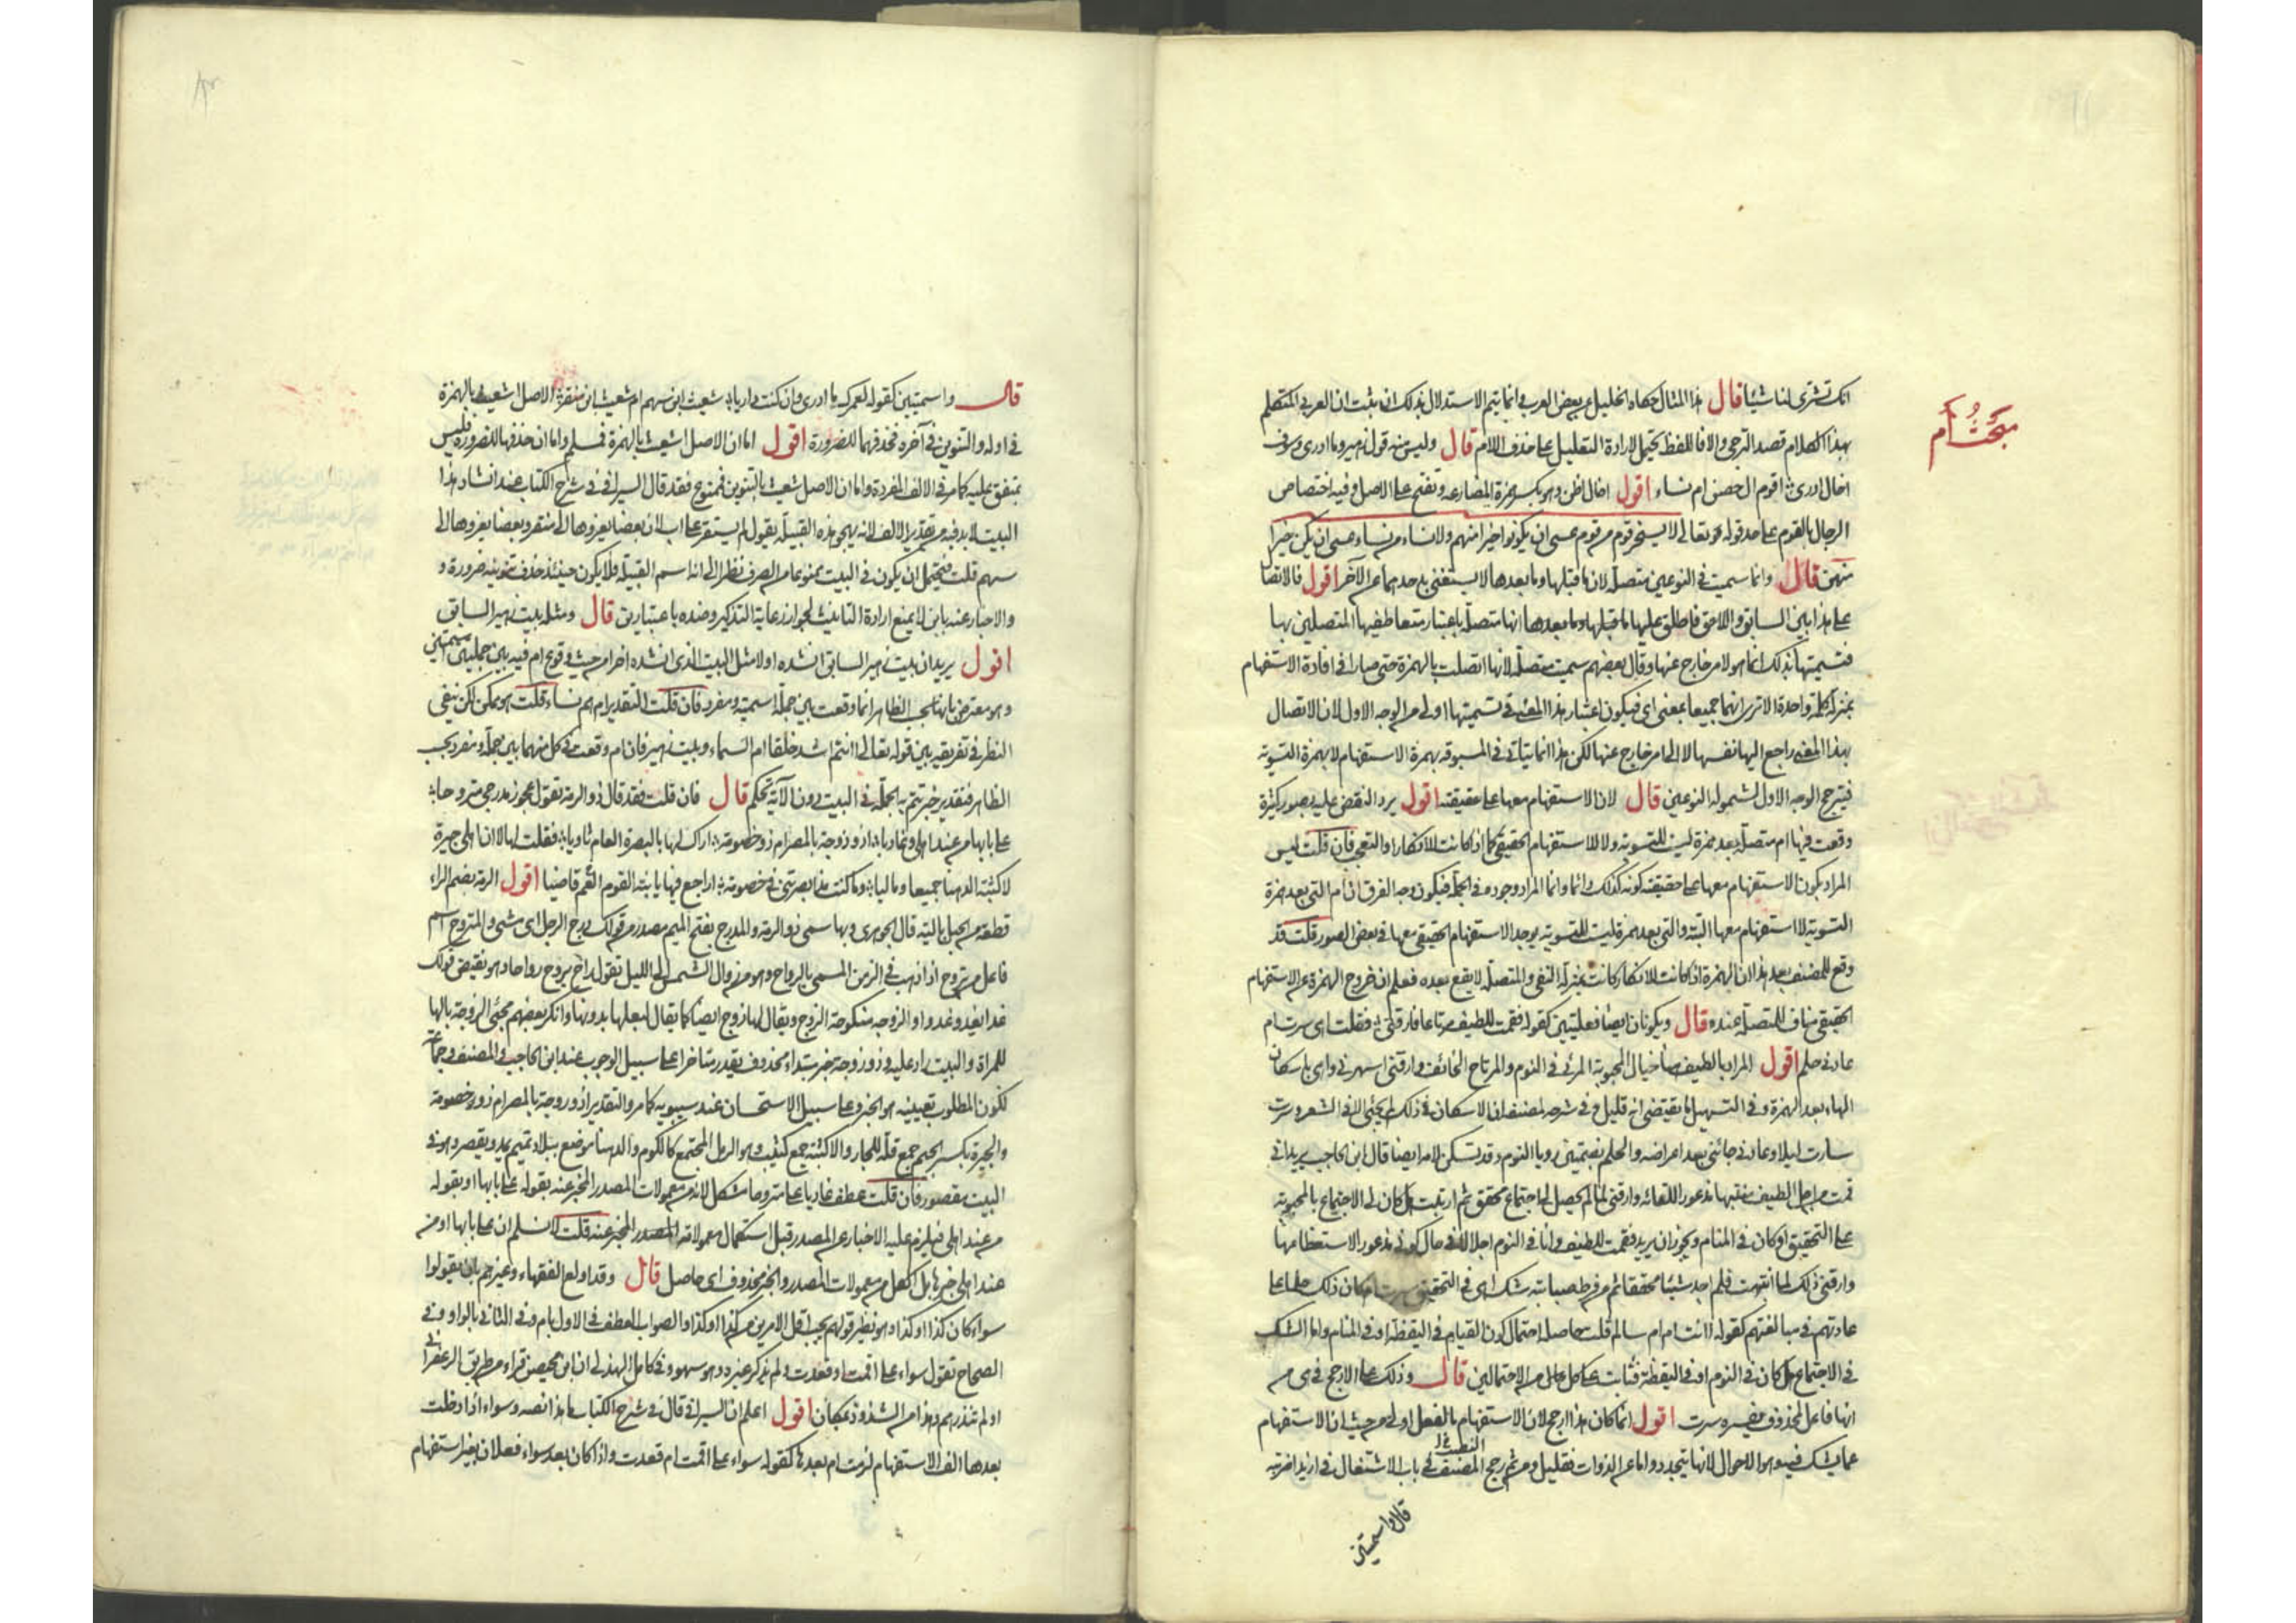 مبحث أم
انك تشترى لنا شيئا قال هذا المثال حكاه الخليل عن بعض العرب انما يتم الاستدلال بذلك ان يثبت ان العربى المتكلم
بهذا الكلام قصد الترجى والا فاللفظ يحتمل لارادة التعليل على حذف اللام قال وليس منه قول زهير وما ادرى وسوف
اخال ادرى اقوم ال حصن ام نساء اقول اخال اظن وهو بكسر همزة المضارعة وتفتح على الاصل وفيه اختصاص
الرجال بالقوم على حد قوله تعالى لا يسخر قوم من قوم عسى ان يكونوا خيرا منهم ولا نساء من نساء عسى ان يكن خيرا
منهن قال وانما سميت فى النوعين متصلة لان ما قبلها وما بعدها لا يستغنى باحدهما عن الآخر اقول فالاتصال
على هذا بين السابق واللاحق فاطلق عليها ما قبلها وما بعدها انها متصلة باعتبار متعاطفيها المتصلين بها
فتسميتها بذلك انما هو لامر خارج عنها وقال بعضهم سميت متصلة لانها اتصلت بالهمزة حتى صارا فى افادة الاستفهام
بمنزلة كلمة واحدة الا ترى انهما جميعا بمعنى اى فيكون اعتبار هذا المعنى فى تسميتها اولى من الوجه الاول لان الاتصال
بهذا المعنى راجع اليها نفسها لا الى امر خارج عنها لكن هذا انما يتأتى فى المسبوقة بهمزة الاستفهام لا بهمزة التسوية
فيترجح الوجه الاول لشموله النوعين قال لان الاستفهام معها على حقيقته اقول يرد النقض عليه بصور كثيرة
وقعت فيها ام متصلة بعد همزة ليست للتسوية ولا للاستفهام الحقيقى كما اذا كانت للانكار او التعجب فان قلت ليس
المراد بكون الاستفهام معها على حقيقته كونه كذلك دائما وانما المراد وجوده فى الجملة فيكون وجه الفرق ان ام التى بعد همزة
التسوية لا استفهام معها البتة والتى بعد همزة ليست للتسوية يوجد الاستفهام الحقيقى معها فى بعض الصور قلت قد
وقع للمصنف بعد هذا ان الهمزة اذا كانت للانكار كانت بمنزلة النفى والمتصلة لا يقع بعده فعلم ان خروج الهمزة عن الاستفهام
الحقيقى مناف للمتصلة عنده قال ويكونان ايضا فعليتين كقوله فقمت للطيف مرتاعا فارقنى فقلت اهى سرت ام
عادنى حلم اقول المراد بالطيف هنا خيال المحبوبة المرئى فى النوم والمرتاع الخائف وارقنى اسهرنى واهى باسكان
الهاء بعد الهمزة وفى التسهيل ما يقتضى انه قليل وفى شرحه لمصنفه ان الاسكان فى ذلك لم يجئ الا فى الشعر وسرت
سارت ليلا وعادنى جائنى بعد اعراضه والحلم بضمتين رويا النوم وقد تسكن لامه ايضا قال ابن الحاجب يريد انى
قمت من اجل الطيف منتبها مذعورا للقائه وارقنى لما لم يحصل لى اجتماع محقق ثم ارتبت هل كان لى الاجتماع بالمحبوبة
على التحقيق او كان فى المنام ويجوز ان يريد فقمت للطيف وانا فى النوم اجلالا فى حال كونى مذعورا لاستعظامها
وارقنى ذلك لما انتبهت فلم اجد شيئا محققا ثم من فرط صبابته شك اهى فى التحقيق سرت ام كان ذلك حلما على
عادتهم فى مبالغتهم كقوله اانت ام ام سالم قلت حاصله احتمال كون القيام فى اليقظة او فى المنام واما الشك
فى الاجتماع هل كان فى النوم او فى اليقظة فثابت على كل من الاحتمالين قال وذلك على الارجح فى هى من
انها فاعل لمحذوف يفسره سرت اقول انما كان هذا ارجح لان الاستفهام بالفعل اولى من حيث ان الاستفهام
عما يشك فيه وهو الاحوال لانها تتجدد واما عن الذوات فقليل ومن ثم رجح المصنف النصب فى باب الاشتغال فى ازيدا ضربته
قال واسميتين
قال واسميتين كقوله لعمرك ما ادرى وان كنت داريا شعيث ابن سهم ام شعيث ابن منقر الاصل اشعيث بالهمزة
فى اوله والتنوين فى آخره فحذفهما للضرورة اقول اما ان الاصل اشعيث بالهمزة فمسلم واما ان حذفها للضرورة فليس
بمتفق عليه كما مر فى الالف المفردة واما ان الاصل شعيث بالتنوين فممنوع فقد قال السيرافى فى شرح الكتاب عند انشاد هذا
البيت لا بد فيه من تقدير الالف لانه يهجو هذه القبيلة يقول لم يستقر على اب لان بعضا يعزوها الى منقر وبعضا يعزوها الى
سهم قلت فيحتمل ان يكون فى البيت ممنوعا من الصرف نظرا الى انه اسم القبيلة فلا يكون حينئذ حذف تنوينه ضرورة و
والاخبار عنه بابن لا يمنع ارادة التانيث لجواز رعاية التذكير وضده باعتبارين قال ومثله بيت زهير السابق
اقول يريد ان بيت زهير السابق انشده اولا مثل البيت الذى انشده اخرا من حيث وقوع ام فيه بين جملتين اسميتين
وهو معترض بانها بحسب الظاهر انما وقعت بين جملة اسمية ومفرد فان قلت التقدير ام هم نساء قلت هو ممكن لكن نبغى
النظر فى تفريقه بين قوله تعالى اانتم اشد خلقا ام السماء وبيت زهير فان ام وقعت فى كل منهما بين جملة ومفرد بحسب
الظاهر فتقدير خبر تتم به الجملة فى البيت دون الآية تحكم قال فان قلت فقد قال ذو الرمة تقول عجوز مدرجى متروحا
على بابها من عند اهلى وغاديا اذو زوجة بالمصر ام ذو خصومة اراك لها بالبصرة العام ثاويا فقلت لها لا ان اهلى جيرة
لاكثبة الدهنا جميعا وماليا وما كنت مذ ابصرتنى فى خصومة اراجع فيها يا بنة القوم القم قاضيا اقول الرمة بضم الراء
قطعة من الحبل بالية قال الجوهرى وبها سمى ذو الرمة والمدرج بفتح الميم مصدر من قولك درج الرجل اى مشى والمتروح اسم
فاعل من تروح اذا ذهب فى الزمن المسمى بالرواح وهو من زوال الشمس الى الليل تقول راح يروح رواحا وهو نقيض قولك
غدا يغدو غدوا والزوجة منكوحة الزوج ويقال لها زوج ايضا كما يقال لبعلها بدونها وانكر بعضهم مجئ الزوجة بالها
للمراة والبيت راد عليه وذو زوجة خبر مبتداء محذوف يقدر متاخرا على سبيل الوجوب عند ابن الحاجب والمصنف وجماعة
لكون المطلوب تعيينه هو الخبر وعلى سبيل الاستحسان عند سيبويه كما مر والتقدير اذو زوجة بالمصر ام ذو خصومة
والجيرة بكسر الجيم جمع قلة للجار والاكثبة جمع كثيب وهو الرمل المجتمع كالكوم والدهنا موضع ببلاد تميم يمد ويقصر وهو فى
البيت مقصور فان قلت عطف غاديا على متروحا مشكل لانه من معمولات المصدر المخبر عنه بقوله على بابها او بقوله
من عند اهلى فيلزم عليه الاخبار عن المصدر قبل استكمال معمولاته المصدر المخبر عنه قلت لا نسلم ان على بابها او من
عند اهلى خبرها بل الكل من معمولات المصدر والخبر محذوف اى حاصل قال وقد اولع الفقهاء وغيرهم بان يقولوا
سواء كان كذا او كذا وهو نظير قولهم يجب اقل الامرين من كذا او كذا والصواب العطف فى الاول بام وفى الثانى بالواو وفى
الصحاح تقول سواء على اقمت او قعدت ولم يذكر غير ذلك وهو سهو وفى كامل الهذلى ان ابن محيصن قراء من طريق الزعفرانى
او لم تنذرهم وهذا من الشذوذ بمكان اقول اعلم ان السيرافى قال فى شرح الكتاب ما هذا نصه وسواء اذا دخلت
بعدها الف الاستفهام لزمت ام بعدها كقوله سواء على اقمت ام قعدت واذا كان بعد سواء فعلان بغير استفهام